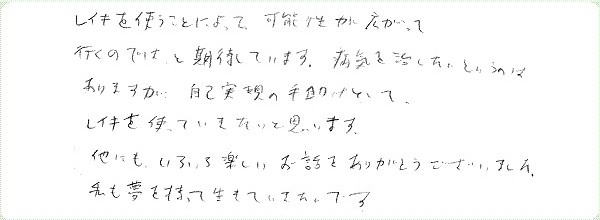 レイキを使うことによって、可能性が広がって
行くのでは、と期待しています。病気を治したいというのは
ありますが、自己実現の手助けとして、
レイキを使っていきたいと思います。
他にも、いろいろ楽しいお話をありがとうございました。
私も夢を持って生きていきたいです